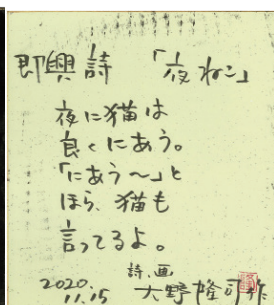 即興詩 「夜ねこ」
夜に猫は
良くにあう。
「にあう〜」と
ほら、猫も
言ってるよ。
2020.
11.15
詩、画
大野隆司作